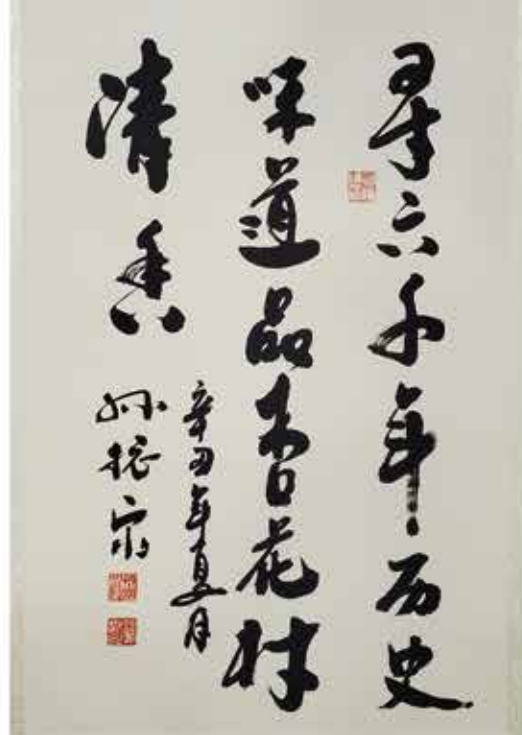 寻六千年历史
味道品杏花村
清香
辛丑年夏月
孙